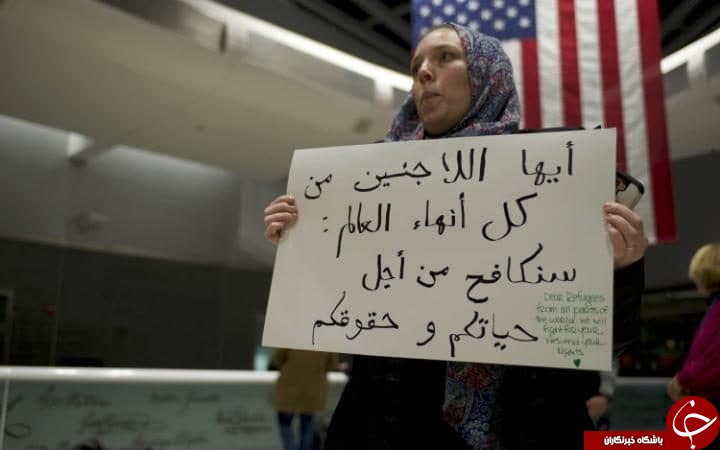 أيها اللاجئين من
كل أنهاء العالم :
سنكافح من أجل
حياتكم و حقوقكم
Dear Refugees
from all parts of
the world: we will
fight for your
lives and your
rights
باشگاه خبرنگاران